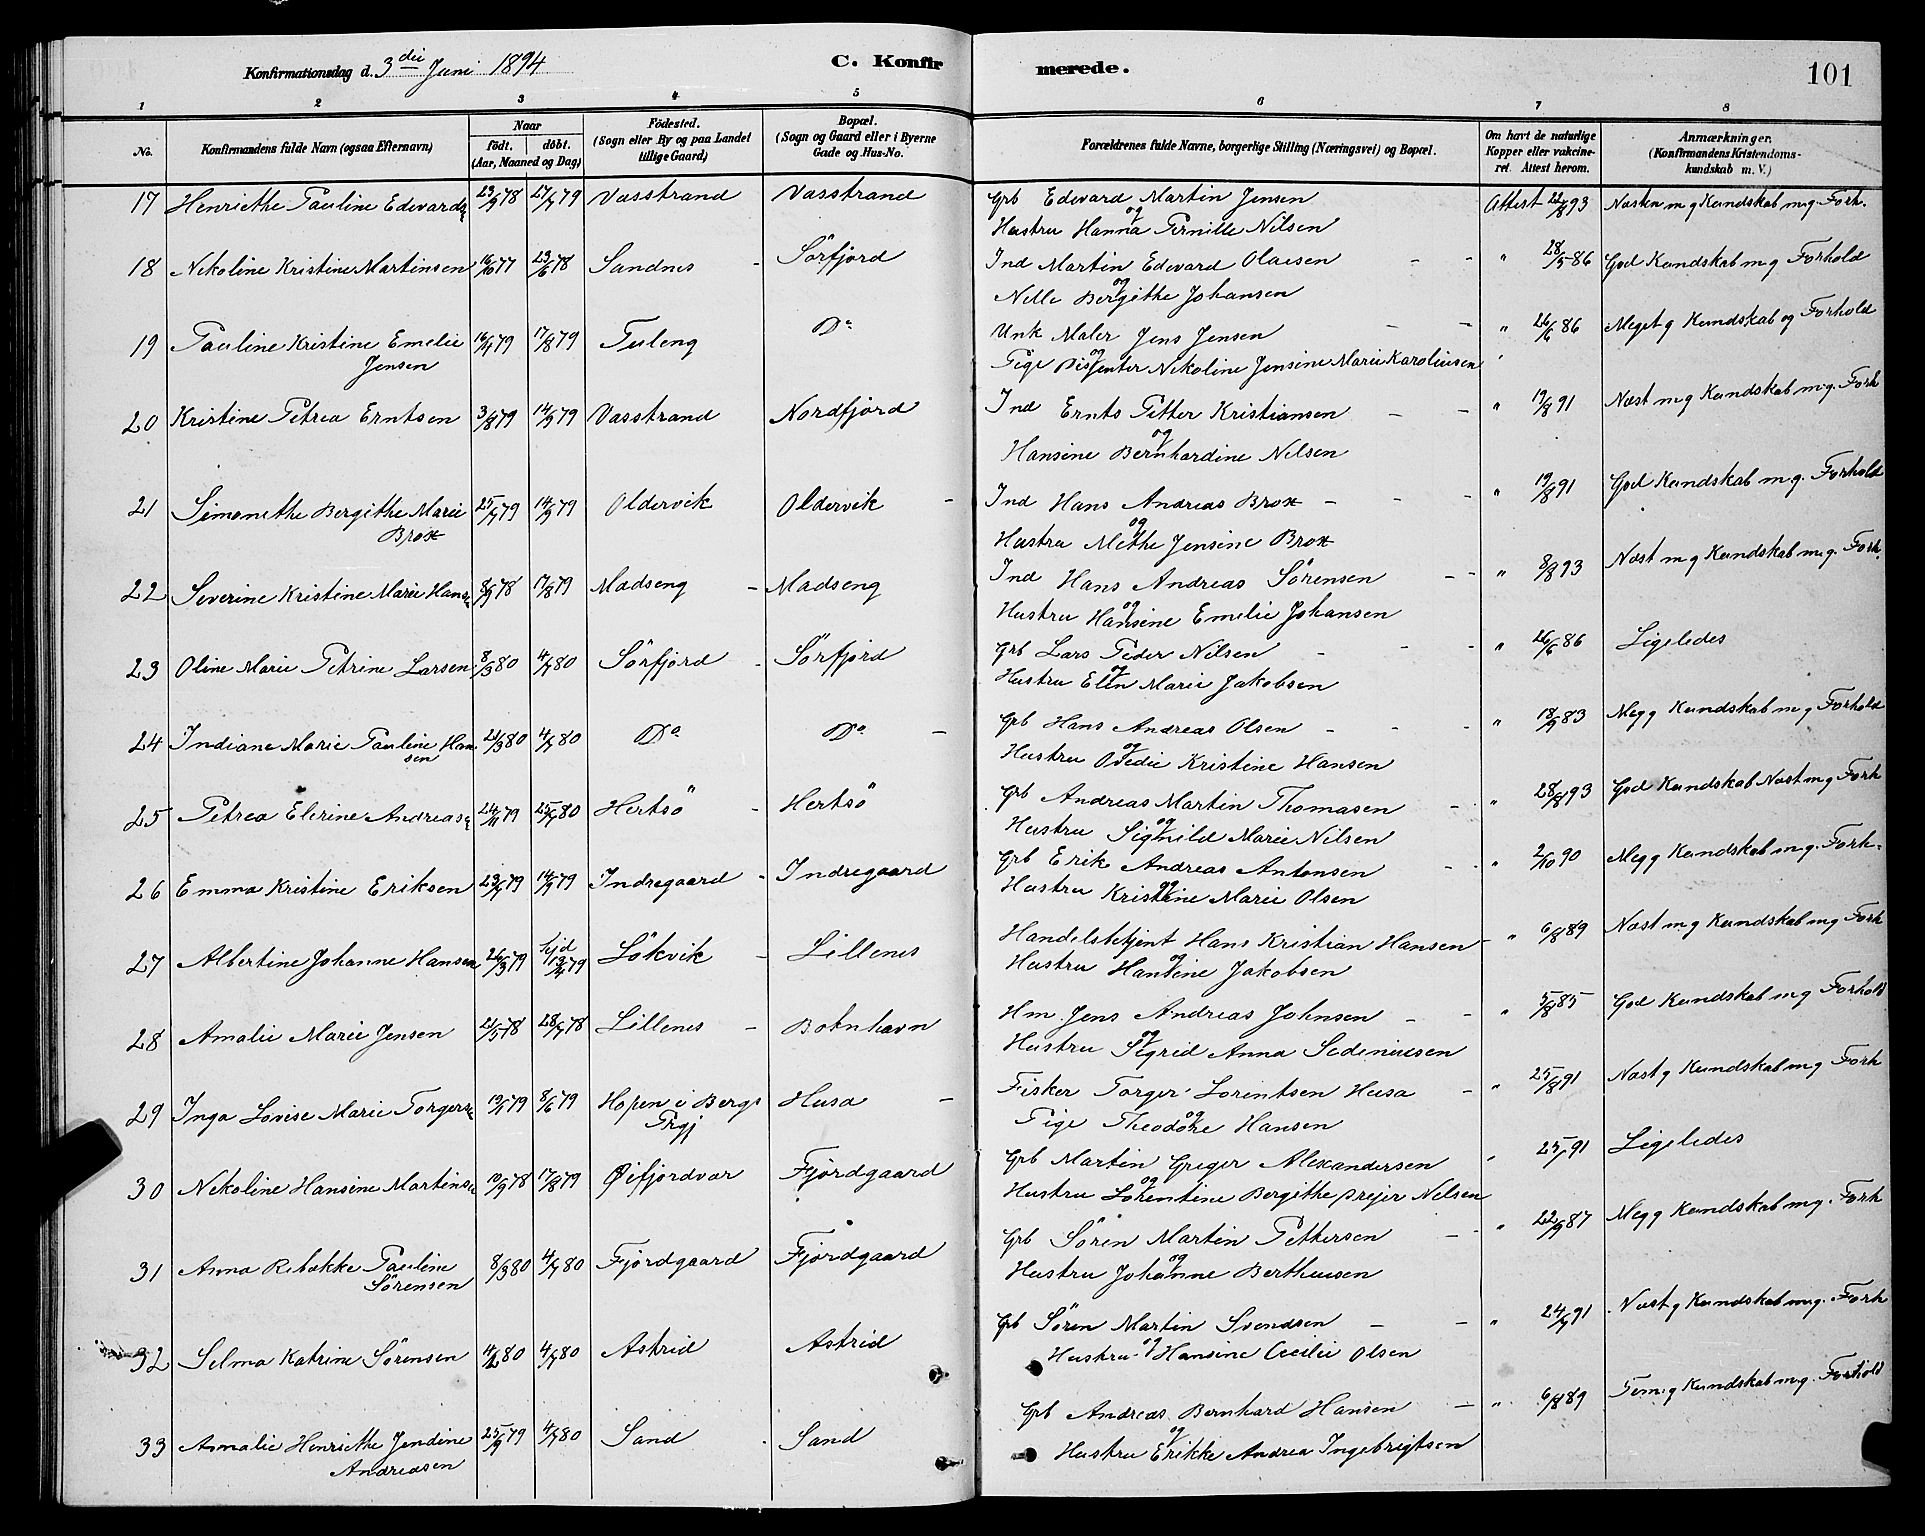 Konfirmationsdag d. 3die Juni 1894
C. Konfirmerede.
101
1 2 3 4 5 6 7 8
No. Konfirmandens fulde Navn (ogsaa Efternavn) Naar födt. döbt. (Aar, Maaned og Dag) Födested. (Sogn eller By og paa Landet tillige Gaard) Bopæl. (Sogn og Gaard eller i Byerne Gade og Hus-No. Forældrenes fulde Navne, borgerlige Stilling (Næringsvei) og Bopæl. Om havt de naturlige Kopper eller vakcineret. Attest herom. Anmærkninger. (Konfirmandens Kristendomskundskab m. V.)
17 Henriethe Pauline Edvards 23/9 78 27/7 79 Vasstrand Vasstrand Grb Edevard Martin Jensen Attest 22/8 93 Næsten m g Kundskab m.g. Forh.
og
Hustru Hanna Pernille Nilsen
18 Nekoline Kristine Martinsen 16/10 77 23/6 78 Sandnes - Sörfjord Ind Martin Edevard Olausen - - " 28/5 86 God Kundskab m g Forhold
og
Nille Bergithe Johansen
19 Pauline Kristine Emelie Jensen 16/4 79 17/8 79 Tuleng Do Unk Maler Jens Jensen - - " 26/6 86 Meget g Kundskab og Forhold
og
Pige Dissenter Nekoline Jensine Marie Karoliusen
20 Kristine Petrea Erntsen 3/8 79 14/9 79 Vasstrand Nordfjord Ind Ernts Petter Kristiansen - - " 19/8 91 Næst m g Kundskab m.g. Forh
og
Hansine Bernhardine Nilsen
21 Simonethe Bergithe Marie Brox 25/7 79 14/9 79 Oldervik Oldervik - Ind Hans Andreas Brox - - - " 19/8 91 God Kundskab m.g. Forhold
og
Hustru Methe Jensine Brox
22 Severine Kristine Marie Hans 8/9 78 17/8 79 Madseng - Madseng Ind Hans Andreas Sörensen - - " 8/8 93 Næst m g Kundskab m.g. Forh.
og
Hustru Hansine Emelie Johansen
23 Oline Marie Petrine Larsen 8/3 80 4/7 80 Sörfjord - Sörfjord Grb Lars Peder Nilsen - - - " 26/6 86 Ligeledes
og
Hustru Elen Marie Jakobsen
24 Indiane Marie Pauline Hansen 21/3 80 4/7 80 Do Do - Grb Hans Andreas Olsen - - - " 18/9 83 Meg g Kundskab m g Forhold
og
Hustru Ovedie Kristine Hansen
25 Petrea Elerine Andreas 24/11 79 25/7 80 Hertsö - Hertsö Grb Andreas Martin Thomasen - - " 28/8 93 God Kundskab Næst m g Forh
og
Hustru Signild Marie Nilsen
26 Emma Kristine Eriksen 23/7 79 14/9 79 Indregaard - Indregaard Grb Erik Andreas Antonsen - - " 2/10 90 Meg g Kundskab m.g. Forh.
og
Hustru Kristine Marie Olsen
27 Albertine Johanne Hansen 26/3 79 hjd 13/4 79 Lökvik - Lillenes Handelsbetjent Hans Kristian Hansen - " 6/8 89 Næst m g Kundskab m g Forh
og
Hustru Hansine Jakobsen
28 Amalie Marie Jensen 21/5 78 28/7 78 Lillenes - Botnhavn Hm. Jens Andreas Johnsen - - " 5/8 85 God Kundskab m g Forhold
og
Hustru Sigrid Anna Sedeniusen
29 Inga Lovise Marie Torgers 19/1 79 8/6 79 Hopen i Bergs Prgj Husa - Fisker Torger Lorentsen Husa - " 25/8 91 Næst g Kundskab m g Forh
og
Pige Theodore Hansen
30 Nekoline Hansine Martins 10/9 78 17/8 79 Øifjordvær Fjordgaard Grb Martin Greger Alexandersen " 25/7 91 Ligeledes
og
Hustru Lorentine Bergithe Prejer Nilsen
31 Anna Rebække Pauline Sörensen 8/3 80 4/7 80 Fjordgaard Fjordgaard Grb Sören Martin Pettersen - " 22/9 87 Meg g Kundskab m.g. Forh
og
Hustru Johanne Berthusen
32 Selma Katrine Sörensen 4/2 80 4/7 80 Astrid Astrid Grb Sören Martin Svendsen - - " 24/9 91 Næst g Kundskab m.g. Forh
og
Hustru Hansine Cecilie Olsen
33 Amalie Henriethe Jendine Andreasen 25/9 79 4/7 80 Sand - Sand Grb Andreas Bernhard Hansen - " 6/8 89 Tem.g Kundskab m.g. Forhold
og
Hustru Erikke Andrea Ingebrigtsen